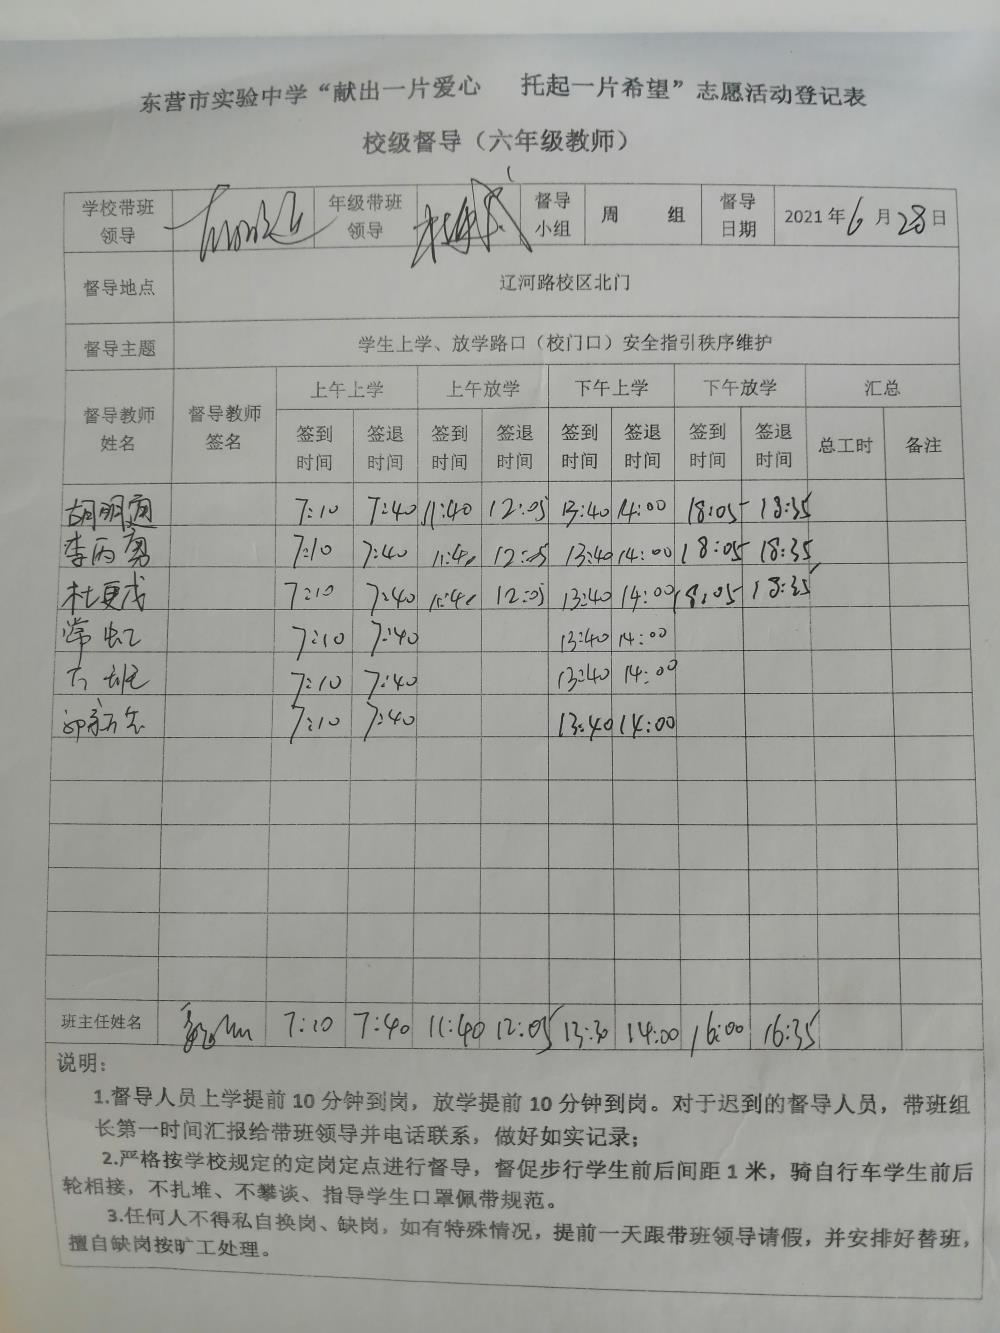 东营市实验中学“献出一片爱心 托起一片希望”志愿活动登记表
校级督导（六年级教师）
学校带班领导 年级带班领导 督导小组 周 组 督导日期 2021年6月28日
督导地点 辽河路校区北门
督导主题 学生上学、放学路口（校门口）安全指引秩序维护
督导教师姓名 督导教师签名 上午上学 上午放学 下午上学 下午放学 汇总
签到时间 签退时间 签到时间 签退时间 签到时间 签退时间 签到时间 签退时间 总工时 备注
胡明 7:10 7:40 11:40 12:05 13:40 14:00 18:05 18:35
李丙勇 7:10 7:40 11:40 12:05 13:40 14:00 18:05 18:35
杜夏 7:10 7:40 11:40 12:05 13:40 14:00 18:05 18:35
常虹 7:10 7:40 13:40 14:00
班 7:10 7:40 13:40 14:00
7:10 7:40 13:40 14:00
班主任姓名 7:10 7:40 11:40 12:05 13:30 14:00 16:00 16:35
说明：
1.督导人员上学提前10分钟到岗，放学提前10分钟到岗。对于迟到的督导人员，带班组
长第一时间汇报给带班领导并电话联系，做好如实记录；
2.严格按学校规定的定岗定点进行督导，督促步行学生前后间距1米，骑自行车学生前后
轮相接，不扎堆、不攀谈、指导学生口罩佩带规范。
3.任何人不得私自换岗、缺岗，如有特殊情况，提前一天跟带班领导请假，并安排好替班，
擅自缺岗按旷工处理。